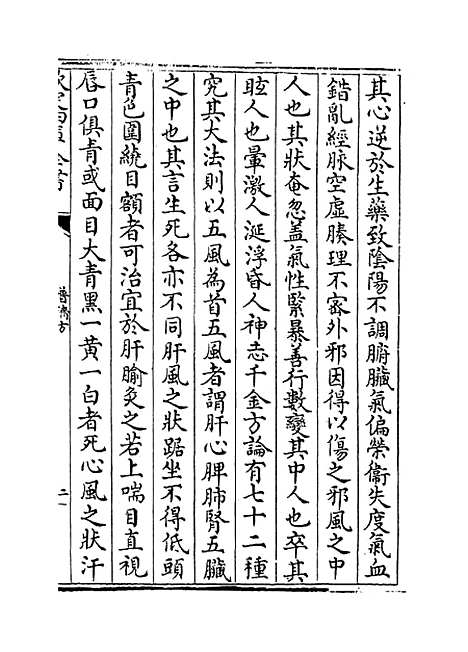 其心逆於生藥致陰陽不調腑臟氣偏榮衞失度氣血
錯亂經脉空虛腠理不宻外邪因得以傷之邪風之中
人也其狀奄忽盖氣性緊暴善行數變其中人也卒其
眩人也暈激人涎浮昏人神志千金方論有七十二種
究其大法則以五風為首五風者謂肝心脾肺腎五臟
之中也其言生死各亦不同肝風之狀踞坐不得低頭
青色圍繞目額者可治宜於肝腧灸之若上喘目直視
唇口俱青或面目大青黑一黃一白者死心風之狀汗
欽定四庫全書
普濟方
二